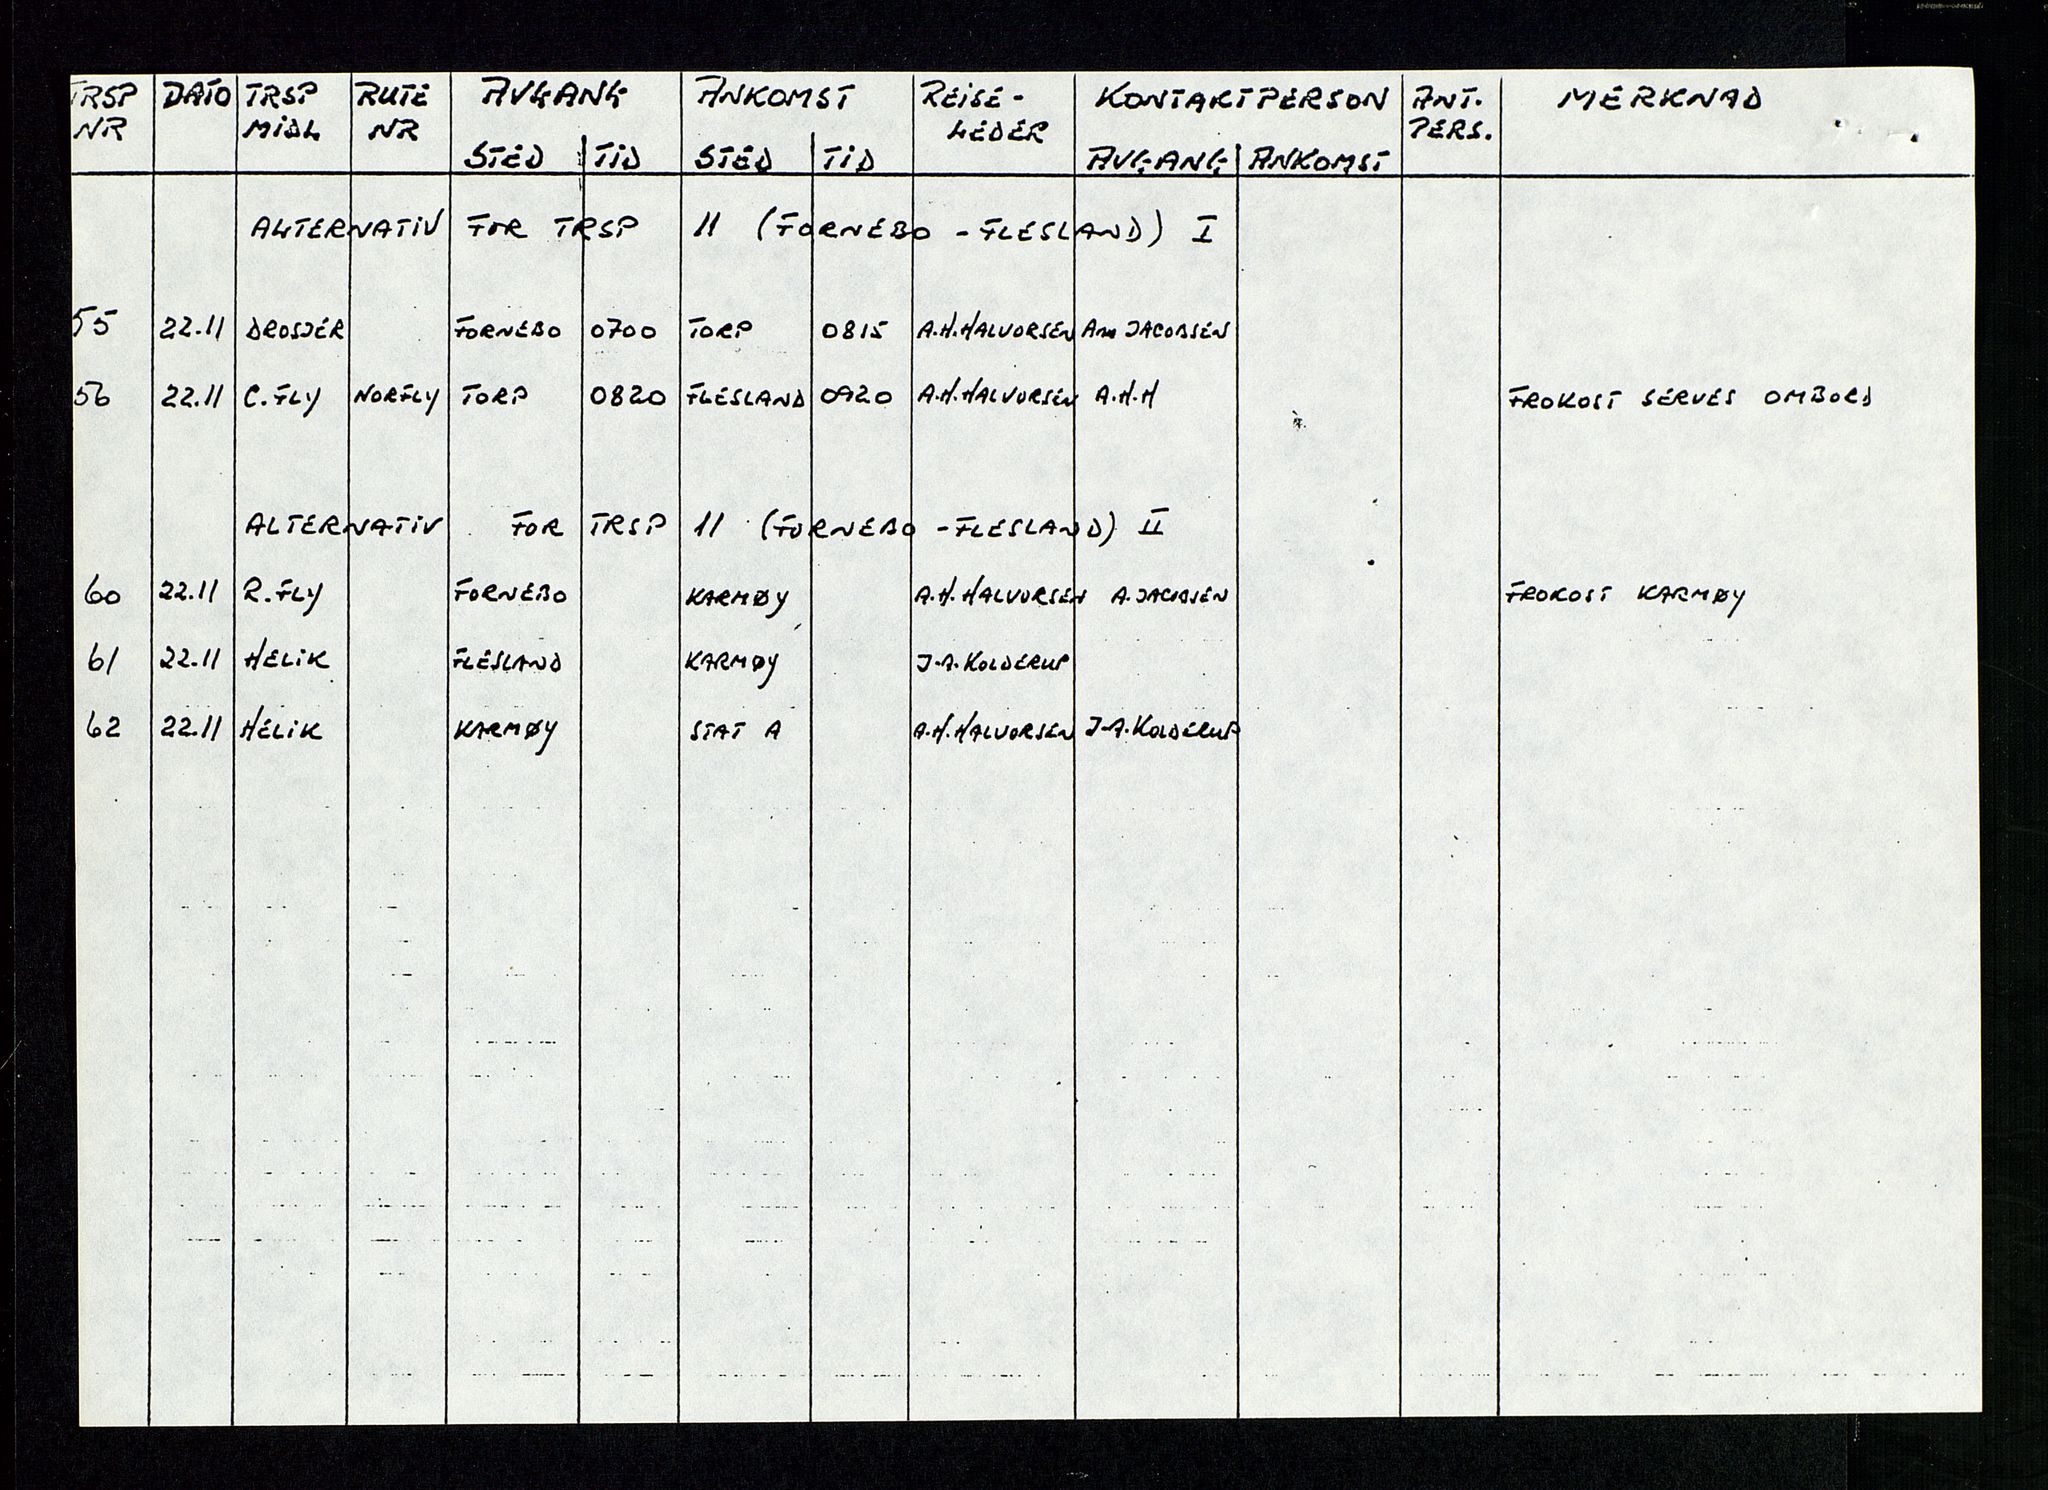 TRSP NR DATO TRSP MIDL RUTE NR AVGANG ANKOMST REISE-LEDER KONTAKTPERSON ANT. PERS. MERKNAD
STED TID STED TID AVGANG ANKOMST
ALTERNATIV FOR TRSP 11 (FORNEBO - FLESLAND) I
55 22.11 DROSJER FORNEBO 0700 TORP 0815 A.H.HALVORSEN JACOBSEN
56 22.11 C.FLY NORFLY TORP 0820 FLESLAND 0920 A.H.HALVORSEN A.H.H FROKOST SERVES OMBORD
ALTERNATIV FOR TRSP 11 (FORNEBO - FLESLAND) II
60 22.11 R.FLY FORNEBO KARMØY A.H.HALVORSEN A.JACOBSEN FROKOST KARMØY
61 22.11 HELIK FLESLAND KARMØY J-A.KOLDERUP
62 22.11 HELIK KARMØY STAT A A.H.HALVORSEN J-A.KOLDERUP